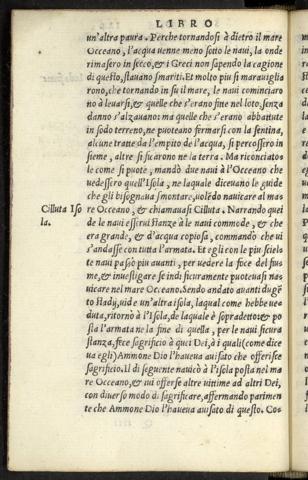 LIBRO
un'altra paura. Perche tornandosi à dietro il mare
Occeano, l'acqua uenne meno sotto le naui, la onde
rimasero in secco, & i Greci non sapendo la cagione
di questo, stauano smariti. Et molto piu si marauiglia
rono, che tornando in su il mare, le naui cominciaro
no à leuarsi, & quelle che s'erano fine nel loto, senza
danno s'alzauano: ma quelle che s'erano abbattute
in sodo terreno, ne puoteano firmarsi con la sentina,
alcune tratte da l'empito de l'acqua, si percossero in
sieme, altre si ficarono ne la terra. Ma riconciatos
le come si puote, mandò due naui à l'Occeano che
uedessero quell'Isola, ne laquale diceuano le guide
che gli bisognaua smontare, uolẽdo nauicare al ma
Cilluta Iso
la.
re Oceano, & chiamauasi Cilluta. Narrando quei
de le naui esserui stanze à le naui commode, & che
era grande, & d'acqua copiosa, commandò che ui
s'andasse con tutta l'armata. Et egli con le piu sciels
te naui passò piu auanti, per uedere la foce del fius
me, & inuestigare se indi sicuramente puoteuasi na
uicare nel mare Oceano. Sendo andato auanti dugẽ
to stadij, uide un'altra isola, laqual come hebbe ues
duta, ritornò à l'Isola, de laquale è sopradetto & po
sta l'armata ne la fine di quella, per le naui sicura
stanza, fece sagrificio à quei Dei, à i quali (come dice
ua egli) Ammone Dio l'haueua auisato che offerisce
sagrificio. Il dì seguente nauicò à l'isola posta nel ma
re Oceano, & iui offerse altre uittime ad altri Dei,
con diuerso modo di sagrificare, affermando parimen
te che Ammone Dio l'haueua auisato di questo. Cos